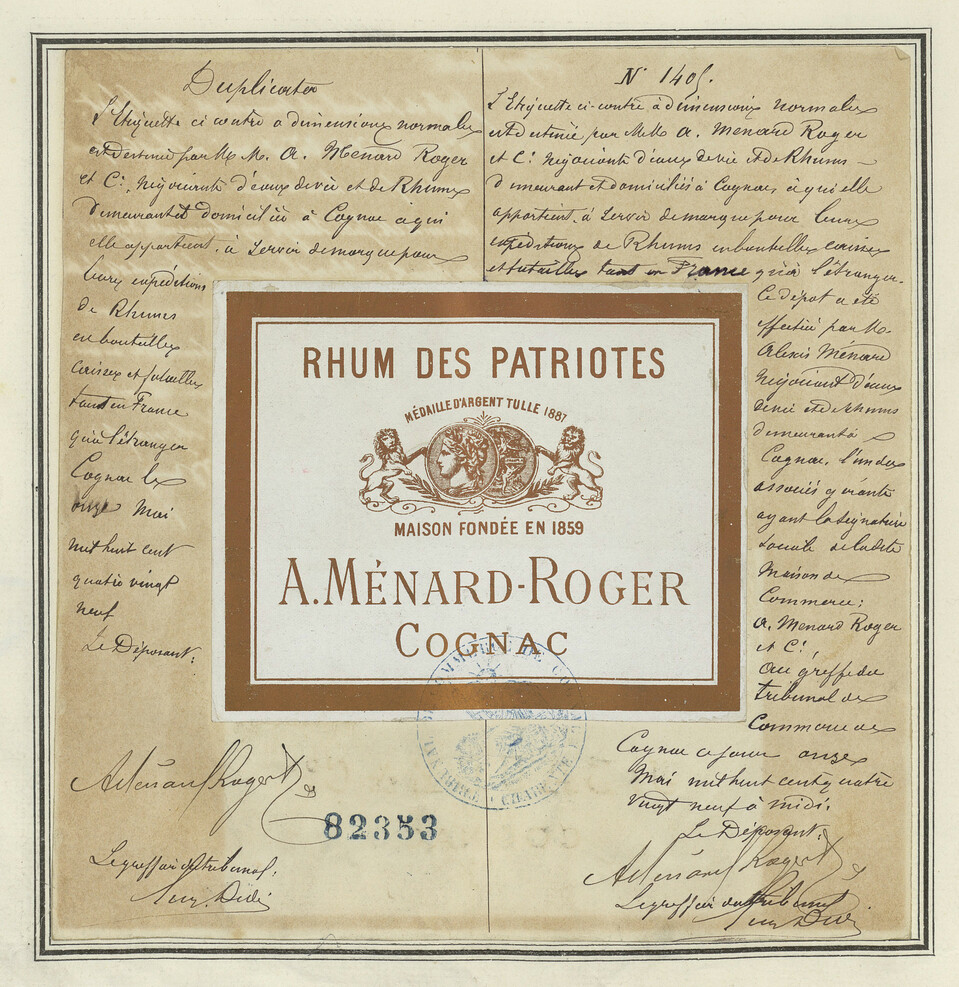 Duplicata
L'Etiquette ci contre a dimensions normales
est destinée par M. M. A. Menard Roger
et Cie. Négociants d'eaux de vie et de Rhums
Demeurant et domiciliés à Cognac à qui
elle appartient, à servir de marque pour
leurs expéditions
de Rhums
en bouteilles
caisses et futailles
tant en France
qu'à l'étranger
Cognac le
onze Mai
mil huit cent
quatre vingt
neuf
Le Déposant:
AMénard Roger
Le greffier du tribunal,
N° 1405.
L'Etiquette ci-contre à dimensions normales
est destinée par M.M. A. Menard Roger
et Cie. Négociants d'eaux de vie et de Rhums
demeurant et domiciliés à Cognac, à qui elle
appartient, à servir de marque pour leurs
expéditions de Rhums en bouteilles caisses
et futailles tant en France qu'à l'étranger.
Ce dépot a été
effectué par M.
Alexis Ménard
Négociant d'eaux
de vie et de Rhums
demeurant à
Cognac, l'un des
associés gérants
ayant la signature
sociale de la dite
Maison de
Commerce:
A. Menard Roger
et Cie.
Au greffe du
tribunal de
Commerce de
Cognac ce jour onze
Mai mil huit cent quatre
vingt neuf à midi.
Le Déposant:
AMénard Roger
Le greffier du tribunal
RHUM DES PATRIOTES
MÉDAILLE D'ARGENT TULLE 1887
MAISON FONDÉE EN 1859
A. MÉNARD-ROGER
COGNAC
82353